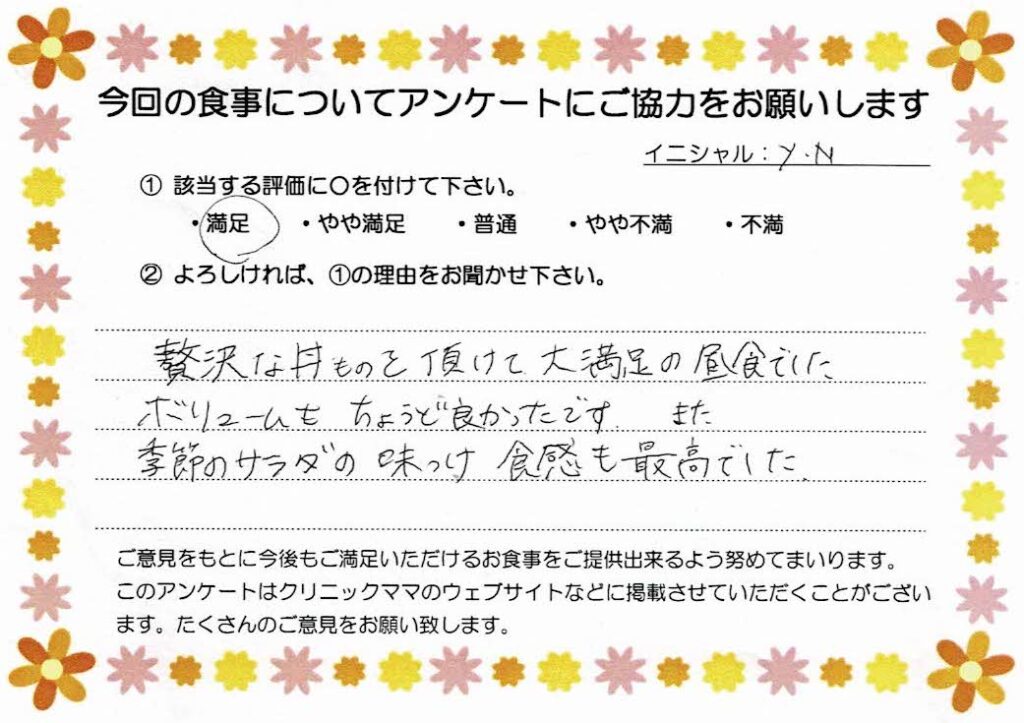 今回の食事についてアンケートにご協力をお願いします
イニシャル：Y.N
① 該当する評価に〇を付けて下さい。
・満足 ・やや満足 ・普通 ・やや不満 ・不満
② よろしければ、①の理由をお聞かせ下さい。
贅沢な丼ものを頂けて大満足の昼食でした
ボリュームも ちょうど良かったです. また
季節のサラダの味つけ 食感も最高でした.
ご意見をもとに今後もご満足いただけるお食事をご提供出来るよう努めてまいります。
このアンケートはクリニックママのウェブサイトなどに掲載させていただくことがござい
ます。たくさんのご意見をお願い致します。